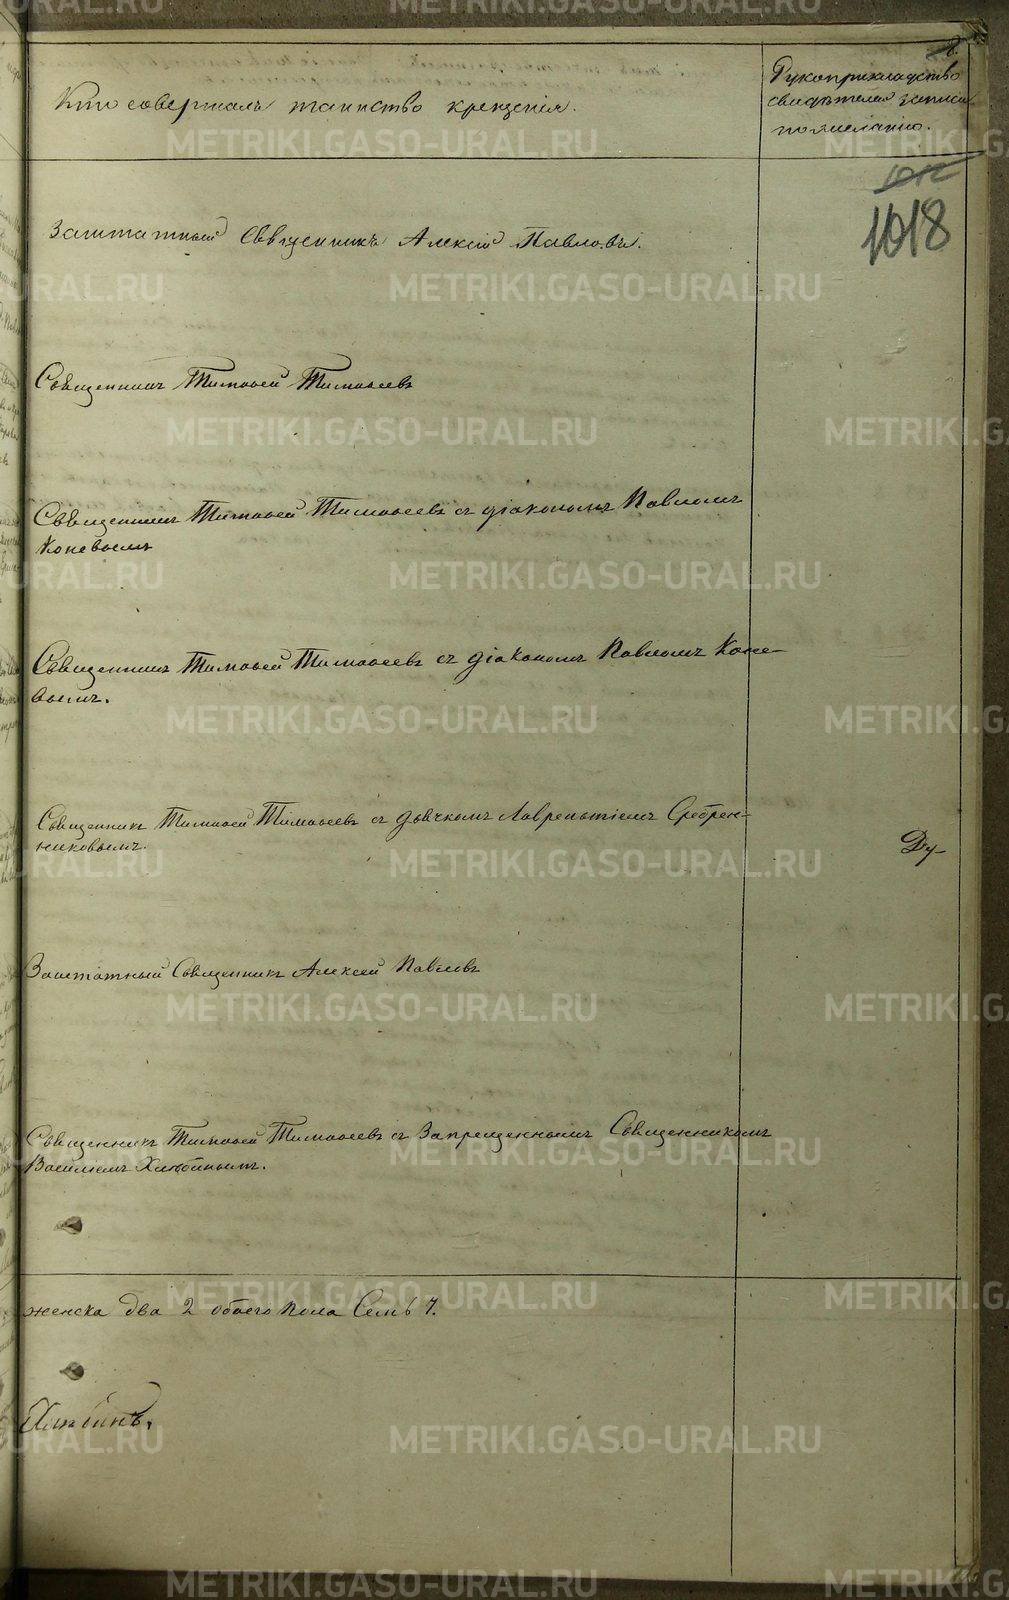 Кто совершалъ таинство крещенія.
Рукоприкладство
свидѣтелей записи
по желанію.
1018
Заштатный Священникъ Алексій Павловъ.
Священникъ Тимоѳей Тимоѳеевъ
Священникъ Тимоѳей Тимоѳеевъ съ діакономъ Павломъ
Коневымъ
Священникъ Тимоѳей Тимоѳеевъ съ діакономъ Павломъ Коне-
вымъ.
Священникъ Тимоѳей Тимоѳеевъ съ дьячкомъ Лаврентіемъ Сребрен-
никовымъ.
Ду-
Заштатный Священникъ Алексей Павловъ
Священникъ Тимоѳей Тимоѳеевъ съ Запрещеннымъ Священникомъ
Василіемъ Хлѣбинымъ.
женска два 2 обоего пола Семь 7.
Хлѣбинъ.
METRIKI.GASO-URAL.RU